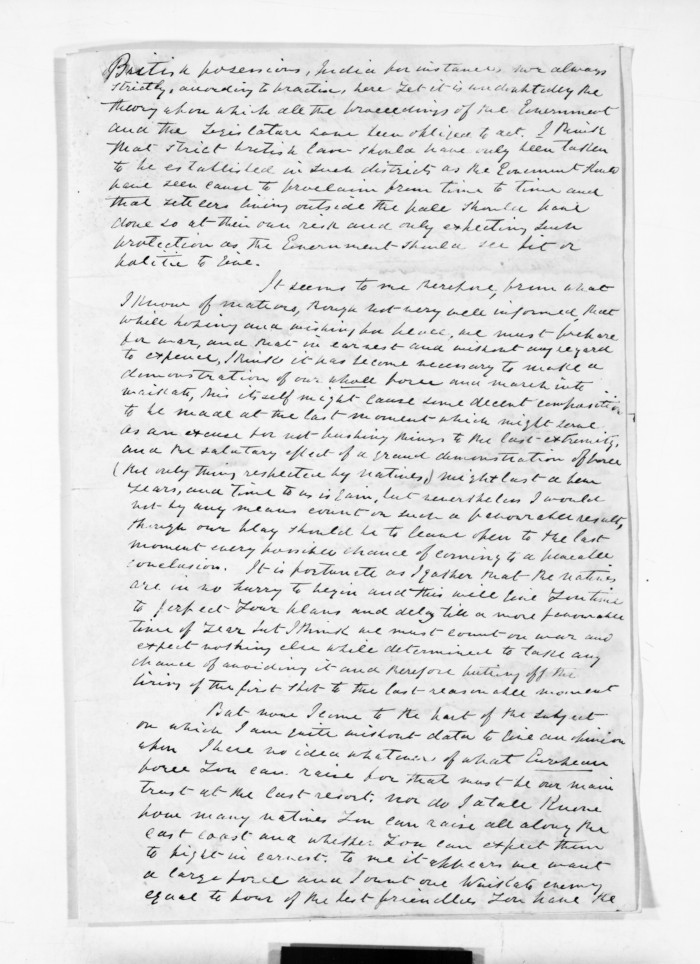 British possessions, India for instance, nor always
strictly, according to practice, here yet it is undoubtedly the
theory upon which all the proceedings of the Government
and the Legislature have been obliged to act. I think
that strict British law should have only been taken
to be established in such districts as the Government should
have seen cause to proclaim from time to time and
that settlers living outside the pale should have
done so at their own risk and only expecting such
protection as the Government should see fit or
politic to give.
It seems to me therefore, from what
I know of matters, though not very well informed that
while hoping and wishing for peace, we must prepare
for war, and that in earnest and without any regard
to expence, I think it has become necessary to make a
demonstration of our whole force and march into
Waikato, this itself might cause some decent composition
to be made at the last moment which might serve
as an excuse for not pushing things to the last extremity,
and the salutary effect of a grand demonstration of force
(the only thing respected by natives,) might last a few
years, and time to us is gain, but nevertheless I would
not by any means count on such a favorable result,
though our play should be to leave open to the last
moment every possible chance of coming to a peaceable
conclusion. It is fortunate as I gather that the natives
are in no hurry to begin and this will give you time
to perfect your plans and delay till a more favourable
time of year but I think we must count on war and
expect nothing else while determined to take any
chance of avoiding it and therefore putting off the
firing of the first shot to the last reasonable moment
But now I come to the part of the subject
on which I am quite without data to give an opinion
upon I have no idea whatever of what European
force you can raise for that must be our main
trust at the last resort. nor do I at all know
how many natives you can raise all along the
east coast and whether you can expect them
to fight in earnest. to me it appears we want
a large force and I count one Waikato enemy
equal to four of the best friendlies you have the